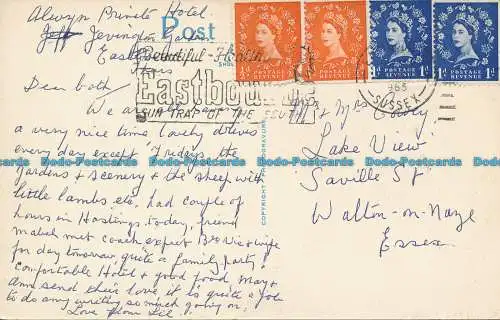 Alwyn Private Hotel.
Jevington Gardens
Post
Beautiful
Eastbourne
SUN TRAP OF THE SOUTH
POSTAGE REVENUE
½d
POSTAGE REVENUE
½d
POSTAGE REVENUE
1d
POSTAGE REVENUE
1d
SUSSEX
Dear both
We are having
a very nice time lovely drives
every day except Fridays, the
gardens & scenery & the sheep with
little lambs etc, had couple of
hours in Hastings today, friend
Mabel met coach expect Bro Vic & wife
for day tomorrow, quite a family party
comfortable Hotel & good food, May &
Ann send their love it is quite a job
to do any writing so much going on,
Love from
COPYRIGHT PHOTOGRAVURE
& Mrs
Lake View
Saville St
Walton-on-Naze
Essex
Dodo-Postcards Dodo-Postcards Dodo-Postcards Dodo-Postcards Dodo-Postcards